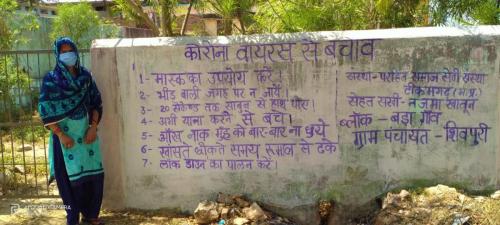 कोरोना वायरस से बचाव
1- मास्क का उपयोग करें।
2- भीड़ वाली जगह पर न जायें।
3- 20 सेकेण्ड तक साबुन से हाथ धोए।
4- अभी यात्रा करने से बचे।
5- आँख, नाक, मुँह को बार-बार ना छुये
6- खाँसते छीकते समय रूमाल से ढके
7- लॉक डाउन का पालन करें।
संस्था- परहित समाज सेवी संस्था
टीकमगढ़ (म.प्र.)
सेहत सखी- नजमा खातून
ब्लॉक- बड़ा गाँव
ग्राम पंचायत- शिवपुरी